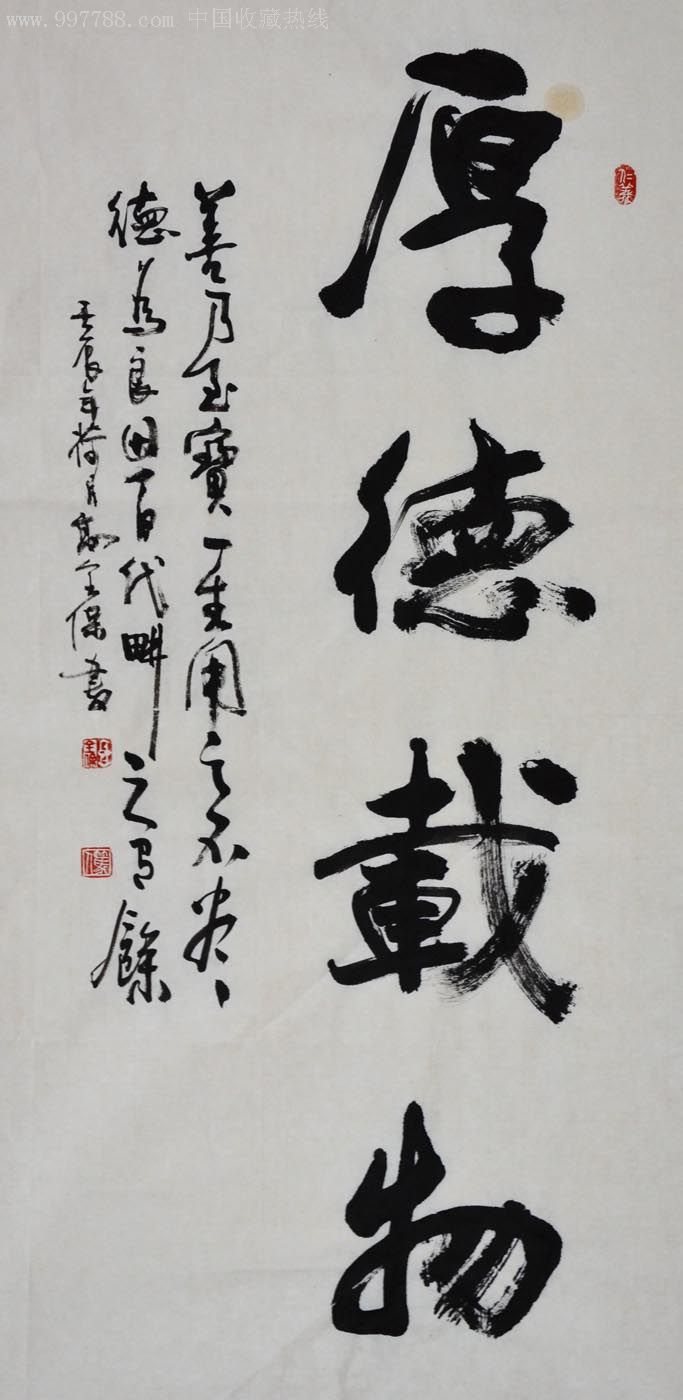 www.997788.com 中国收藏热线
厚德載物
善乃至寶一生用之不尽
德為良田百代畊之有餘
壬辰年荷月 全保書